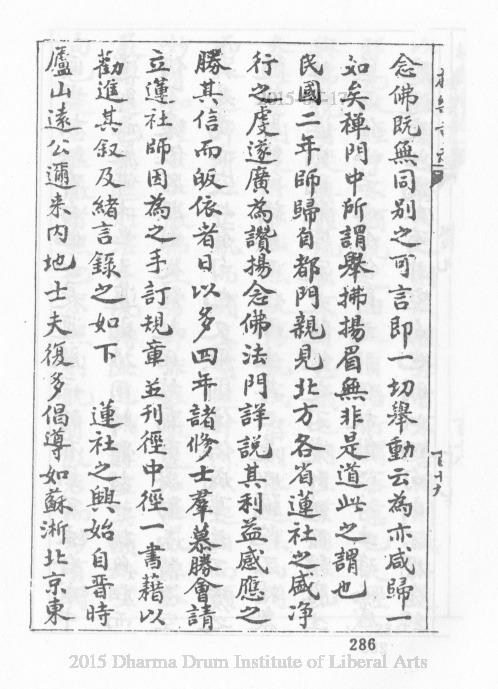 念佛既無同別之可言即一切舉動云為亦咸歸一
如矣禪門中所謂舉拂揚眉無非是道此之謂也
民國二年師歸自都門親見北方各省蓮社之盛净
行之虔遂廣為讚揚念佛法門詳說其利益感應之
勝其信而皈依者日以多四年諸修士羣慕勝會請
立蓮社師因為之手訂規章並刊徑中徑一書藉以
勸進其叙及緒言錄之如下 蓮社之興始自晉時
廬山遠公邇来内地士夫復多倡導如蘇淅北京東
百十九
286
2015 Dharma Drum Institute of Liberal Arts